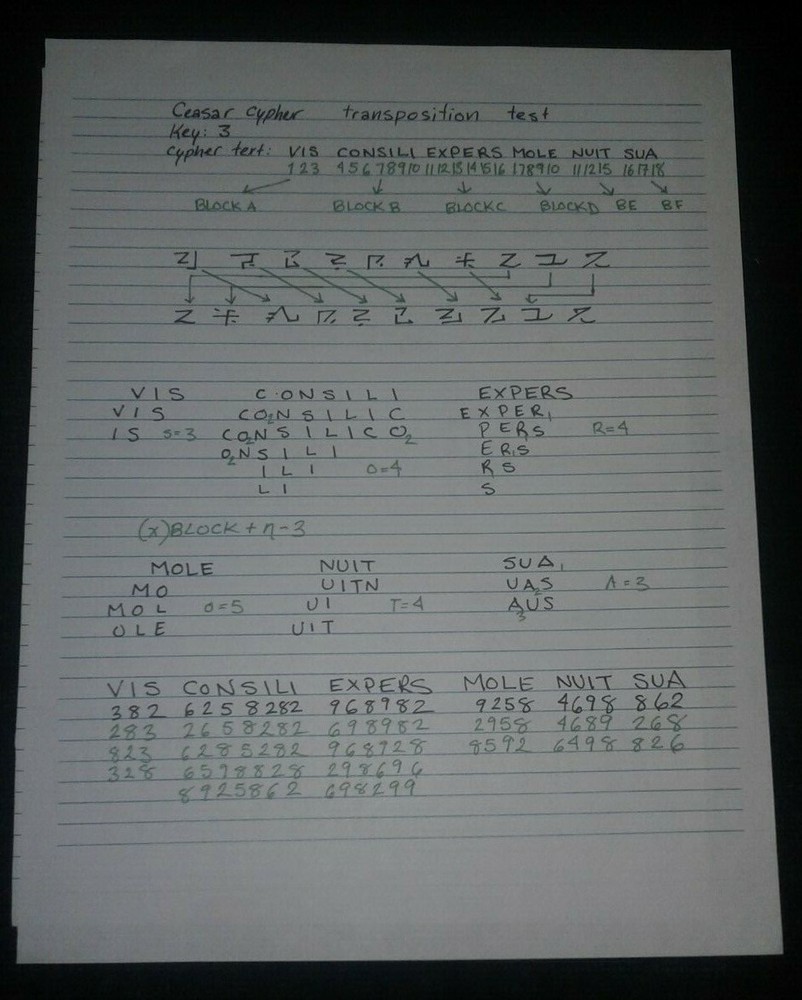 Ceasar cypher transposition test
Key: 3
cypher text: VIS CONSILI EXPERS MOLE NUIT SUA
1 2 3 4 5 6 7 8 9 10 11 12 13 14 15 16 1 7 8 9 10 11 12 15 16 17 18
BLOCK A BLOCK B BLOCK C BLOCK D BE BF
VIS CONSILI EXPERS
VIS CO₂NSILIC EXPER₁
IS S=3 CO₂NSILICO₂ PERS R=4
O₂NSILI ER₁S
ILI O=4 RS
LI S
(x)BLOCK + n - 3
MOLE NUIT SUA₁
MO UITN UA₂S A=3
MOL O=5 UI T=4 A₃US
OLE UIT
VIS CONSILI EXPERS MOLE NUIT SUA
382 6258282 968982 9258 4698 862
283 2658282 698982 2958 4689 268
823 6285282 968728 8592 6498 826
328 6598828 298696
8925862 698299